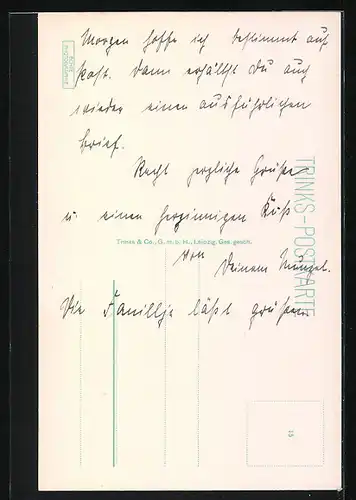 Morgen hoffe ich bestimmt auf
Post. Dann erhältst Du auch
wieder einen ausführlichen
Brief.
Recht herzliche Grüße
u. einen herzinnigen Kuß
von
Deinem
Die Familie läßt grüßen
Trinks & Co., G. m. b. H., Leipzig. Ges. gesch.
TRINKS-POSTKARTE